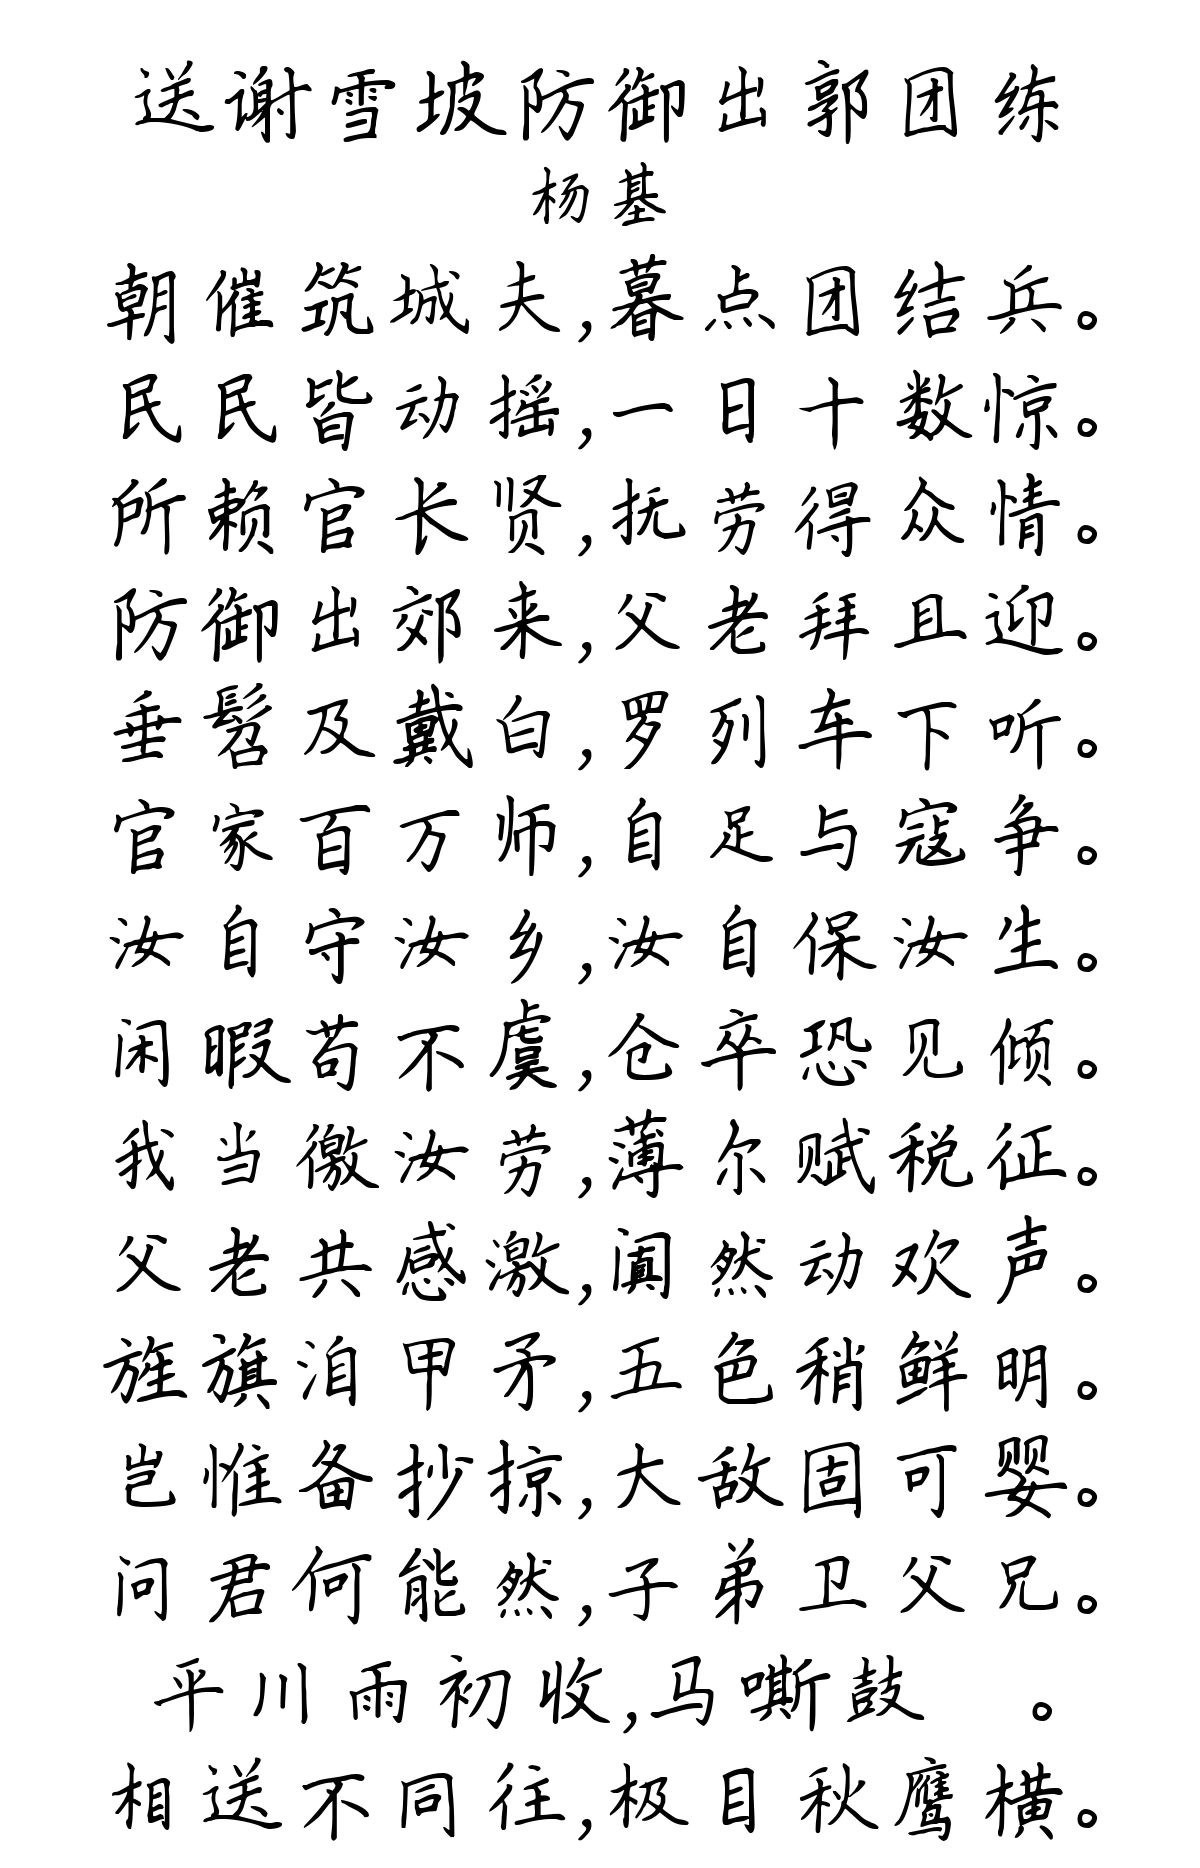 送谢雪坡防御出郭团练
杨基
朝催筑城夫,暮点团结兵。
民民皆动摇,一日十数惊。
所赖官长贤,抚劳得众情。
防御出郊来,父老拜且迎。
垂髫及戴白,罗列车下听。
官家百万师,自足与寇争。
汝自守汝乡,汝自保汝生。
闲暇苟不虞,仓卒恐见倾。
我当徼汝劳,薄尔赋税征。
父老共感激,阗然动欢声。
旌旗洎甲矛,五色稍鲜明。
岂惟备抄掠,大敌固可婴。
问君何能然,子弟卫父兄。
平川雨初收,马嘶鼓 。
相送不同往,极目秋鹰横。